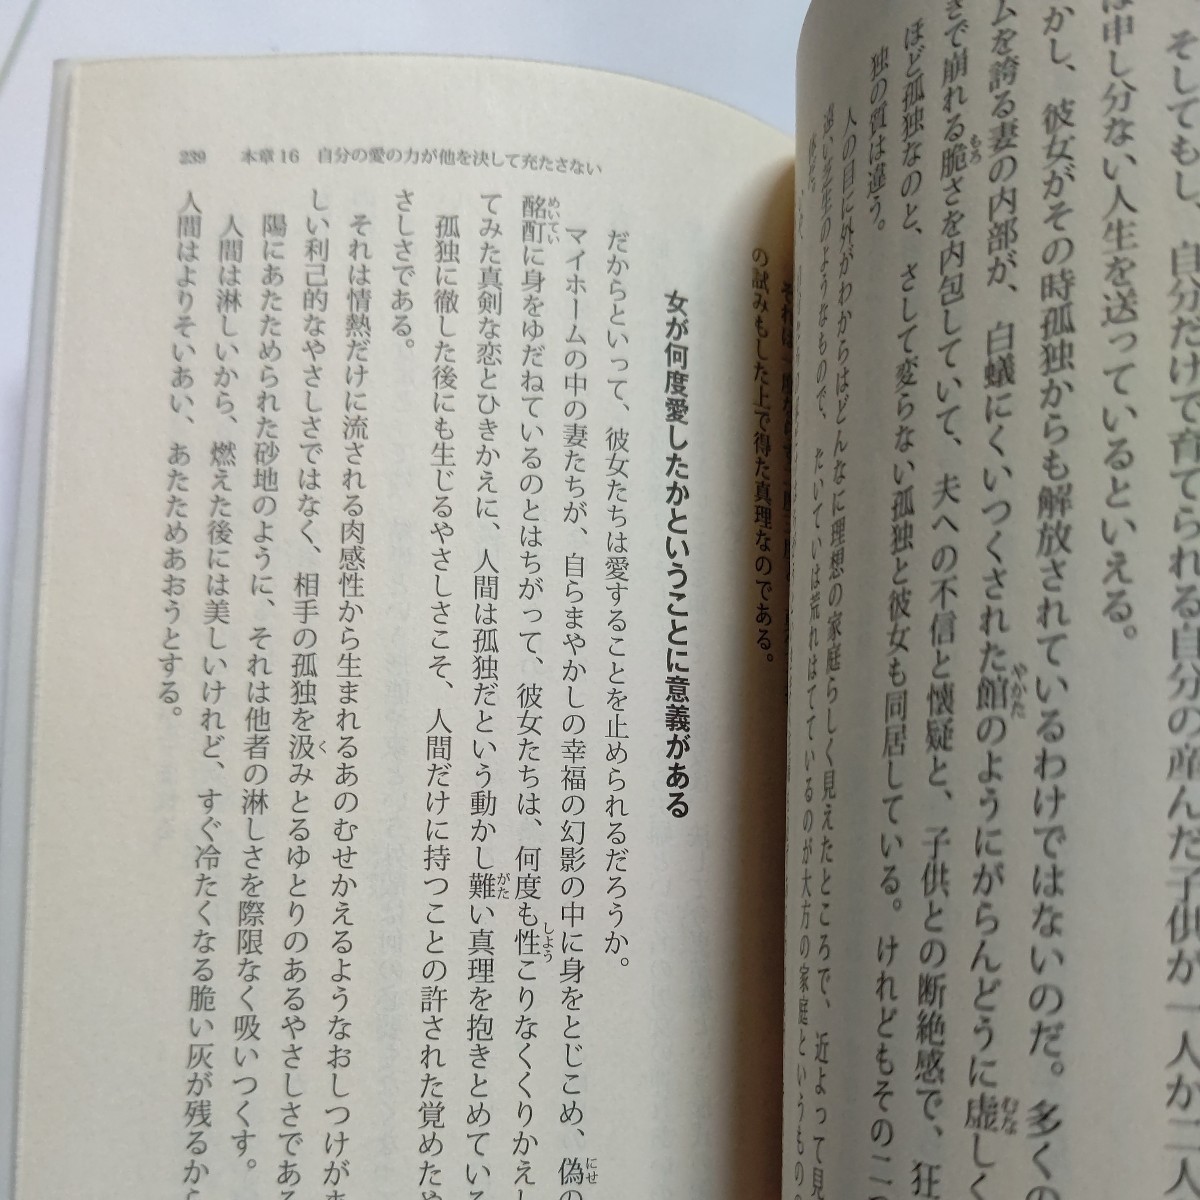 そしてもし、自分だけで育てられる自分の産んだ子供が一人か二人
は申し分ない人生を送っているといえる。
かし、彼女がその時孤独からも解放されているわけではないのだ。多くの
ムを誇る妻の内部が、白蟻にくいつくされた館のようにがらんどうに虚しく
やかた
むな
きで崩れる脆さを内包していて、夫への不信と懐疑と、子供との断絶感で、狂
もろ
ほど孤独なのと、さして変らない孤独と彼女も同居している。けれどもその二つ
独の質は違う。
人の目に外がわからはどんなに理想の家庭らしく見えたところで、近よって見
遠い芝生のようなもので、たいていは荒れはてているのが大方の家庭というもの
の試みもした上で得た真理なのである。
239 本章16 自分の愛の力が他を決して充たさない
女が何度愛したかということに意義がある
だからといって、彼女たちは愛することを止められるだろうか。
マイホームの中の妻たちが、自らまやかしの幸福の幻影の中に身をとじこめ、偽の
にせ
酩酊に身をゆだねているのとはちがって、彼女たちは、何度も性こりなくくりかえし
めいてい
しよう
てみた真剣な恋とひきかえに、人間は孤独だという動かし難い真理を抱きとめている
がた
孤独に徹した後にも生じるやさしさこそ、人間だけに持つことの許された覚めたや
さしさである。
それは情熱だけに流される肉感性から生まれるあのむせかえるようなおしつけがま
しい利己的なやさしさではなく、相手の孤独を汲みとるゆとりのあるやさしさである
く
陽にあたためられた砂地のように、それは他者の淋しさを際限なく吸いつくす。
人間は淋しいから、燃えた後には美しいけれど、すぐ冷たくなる脆い灰が残るから
人間はよりそいあい、あたためあおうとする。